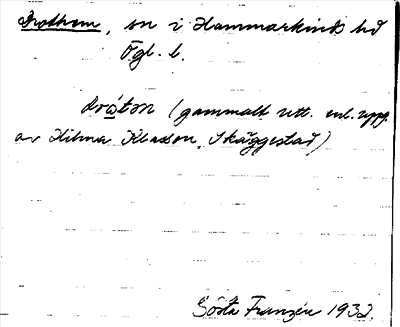 Drothem, sn i Hammarkinds hd
Ögl. l.
dråtəm (gammalt utt. enl. uppg.
av Hilma Klasson, Skäggestad)
Gösta Franzén 1932.